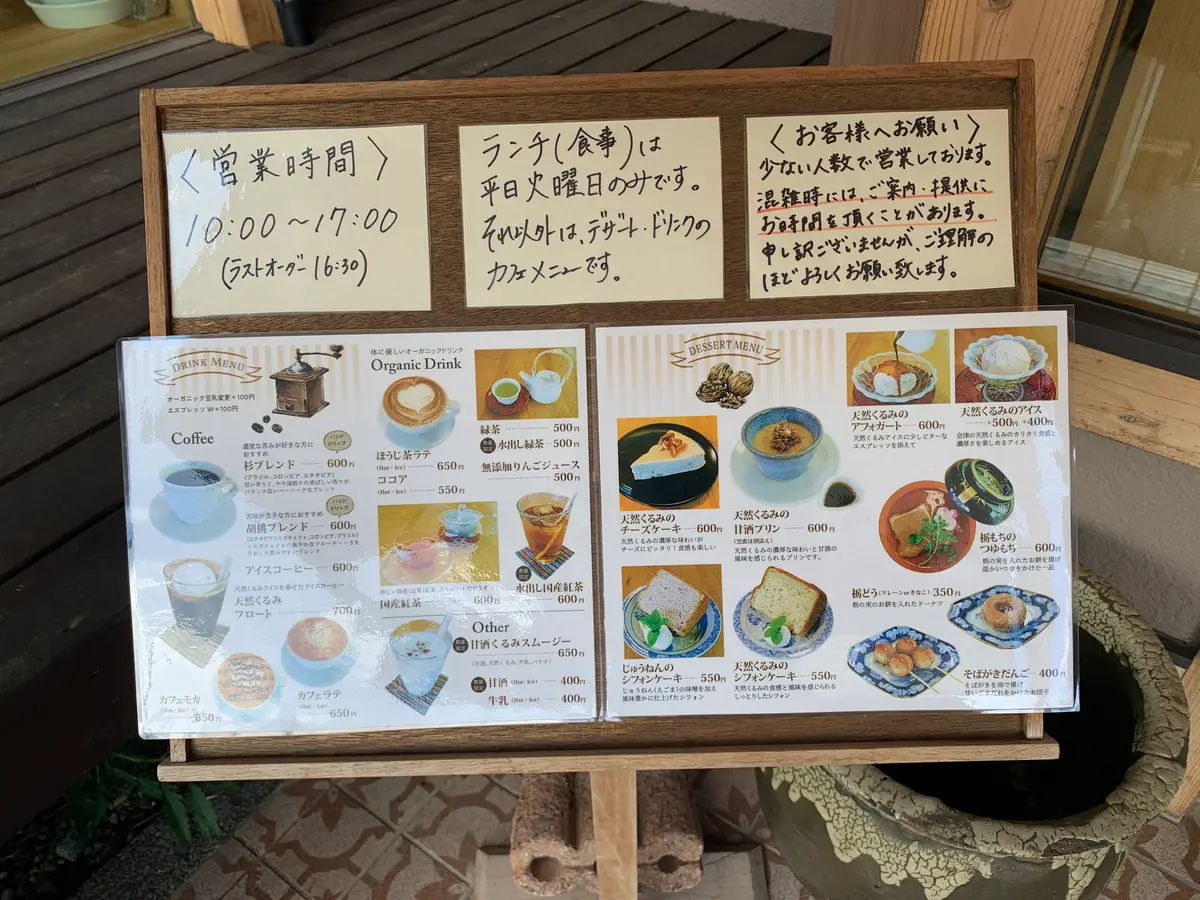 〈営業時間〉
10:00〜17:00
(ラストオーダー 16:30)
ランチ(食事)は
平日火曜日のみです。
それ以外は、デザート・ドリンクの
カフェメニューです。
〈お客様へお願い〉
少ない人数で営業しております。
混雑時には、ご案内・提供に
お時間を頂くことがあります。
申し訳ございませんが、ご理解の
ほどよろしくお願い致します。
DRINK MENU
オーガニック豆乳変更+100円
エスプレッソ W+100円
Coffee
濃度な苦みが好きな方に
おすすめ
ハンド
ドリップ
杉ブレンド 600円
(ブラジル、コロンビア、エチオピア)
苦味が苦手な方におすすめ
ハンド
ドリップ
胡桃ブレンド 600円
アイスコーヒー 600円
天然くるみアイスを乗せたアイスコーヒー
天然くるみ
フロート 700円
カフェモカ
(Hot・Ice)
650円
カフェラテ
(Hot・Ice)
650円
体に優しいオーガニックドリンク
Organic Drink
ほうじ茶ラテ
(Hot・Ice) 650円
ココア
(Hot・Ice) 550円
緑茶 500円
数量
限定
水出し緑茶 500円
無添加りんごジュース
500円
国産紅茶 600円
数量
限定
水出し国産紅茶
600円
Other
数量
限定
甘酒くるみスムージー
650円
(甘酒、天然くるみ、牛乳、バナナ)
数量
限定
甘酒 (Hot・Ice) 400円
牛乳 (Hot・Ice) 400円
DESSERT MENU
天然くるみの
アフォガート 600円
天然くるみアイスに少しビターな
エスプレッソを添えて
天然くるみのアイス
L 500円 S 400円
会津の天然くるみのカリカリ食感と
濃厚さを楽しめるアイス
天然くるみの
チーズケーキ 600円
天然くるみの濃厚な味わいが
チーズにピッタリ！食感も楽しい
天然くるみの
甘酒プリン 600円
(黒蜜は別添え)
天然くるみの濃厚な味わいと甘酒の
風味を感じられるプリンです。
栃もちの
つゆもち 600円
栃の実を入れたお餅を揚げ
温かいつゆをかけた一品
栃どう(プレーンorきなこ) 350円
栃の実のお餅を入れたドーナツ
じゅうねんの
シフォンケーキ 550円
じゅうねん(えごま)の味噌を加え
風味豊かに仕上げたシフォン
天然くるみの
シフォンケーキ 550円
天然くるみの食感と風味を感じられる
しっとりしたシフォン
そばがきだんご 400円
そばがきを油で揚げ
甘いごまだれをかけたお団子